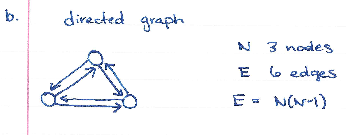 b. directed graph
N 3 nodes
E 6 edges
E = N(N-1)